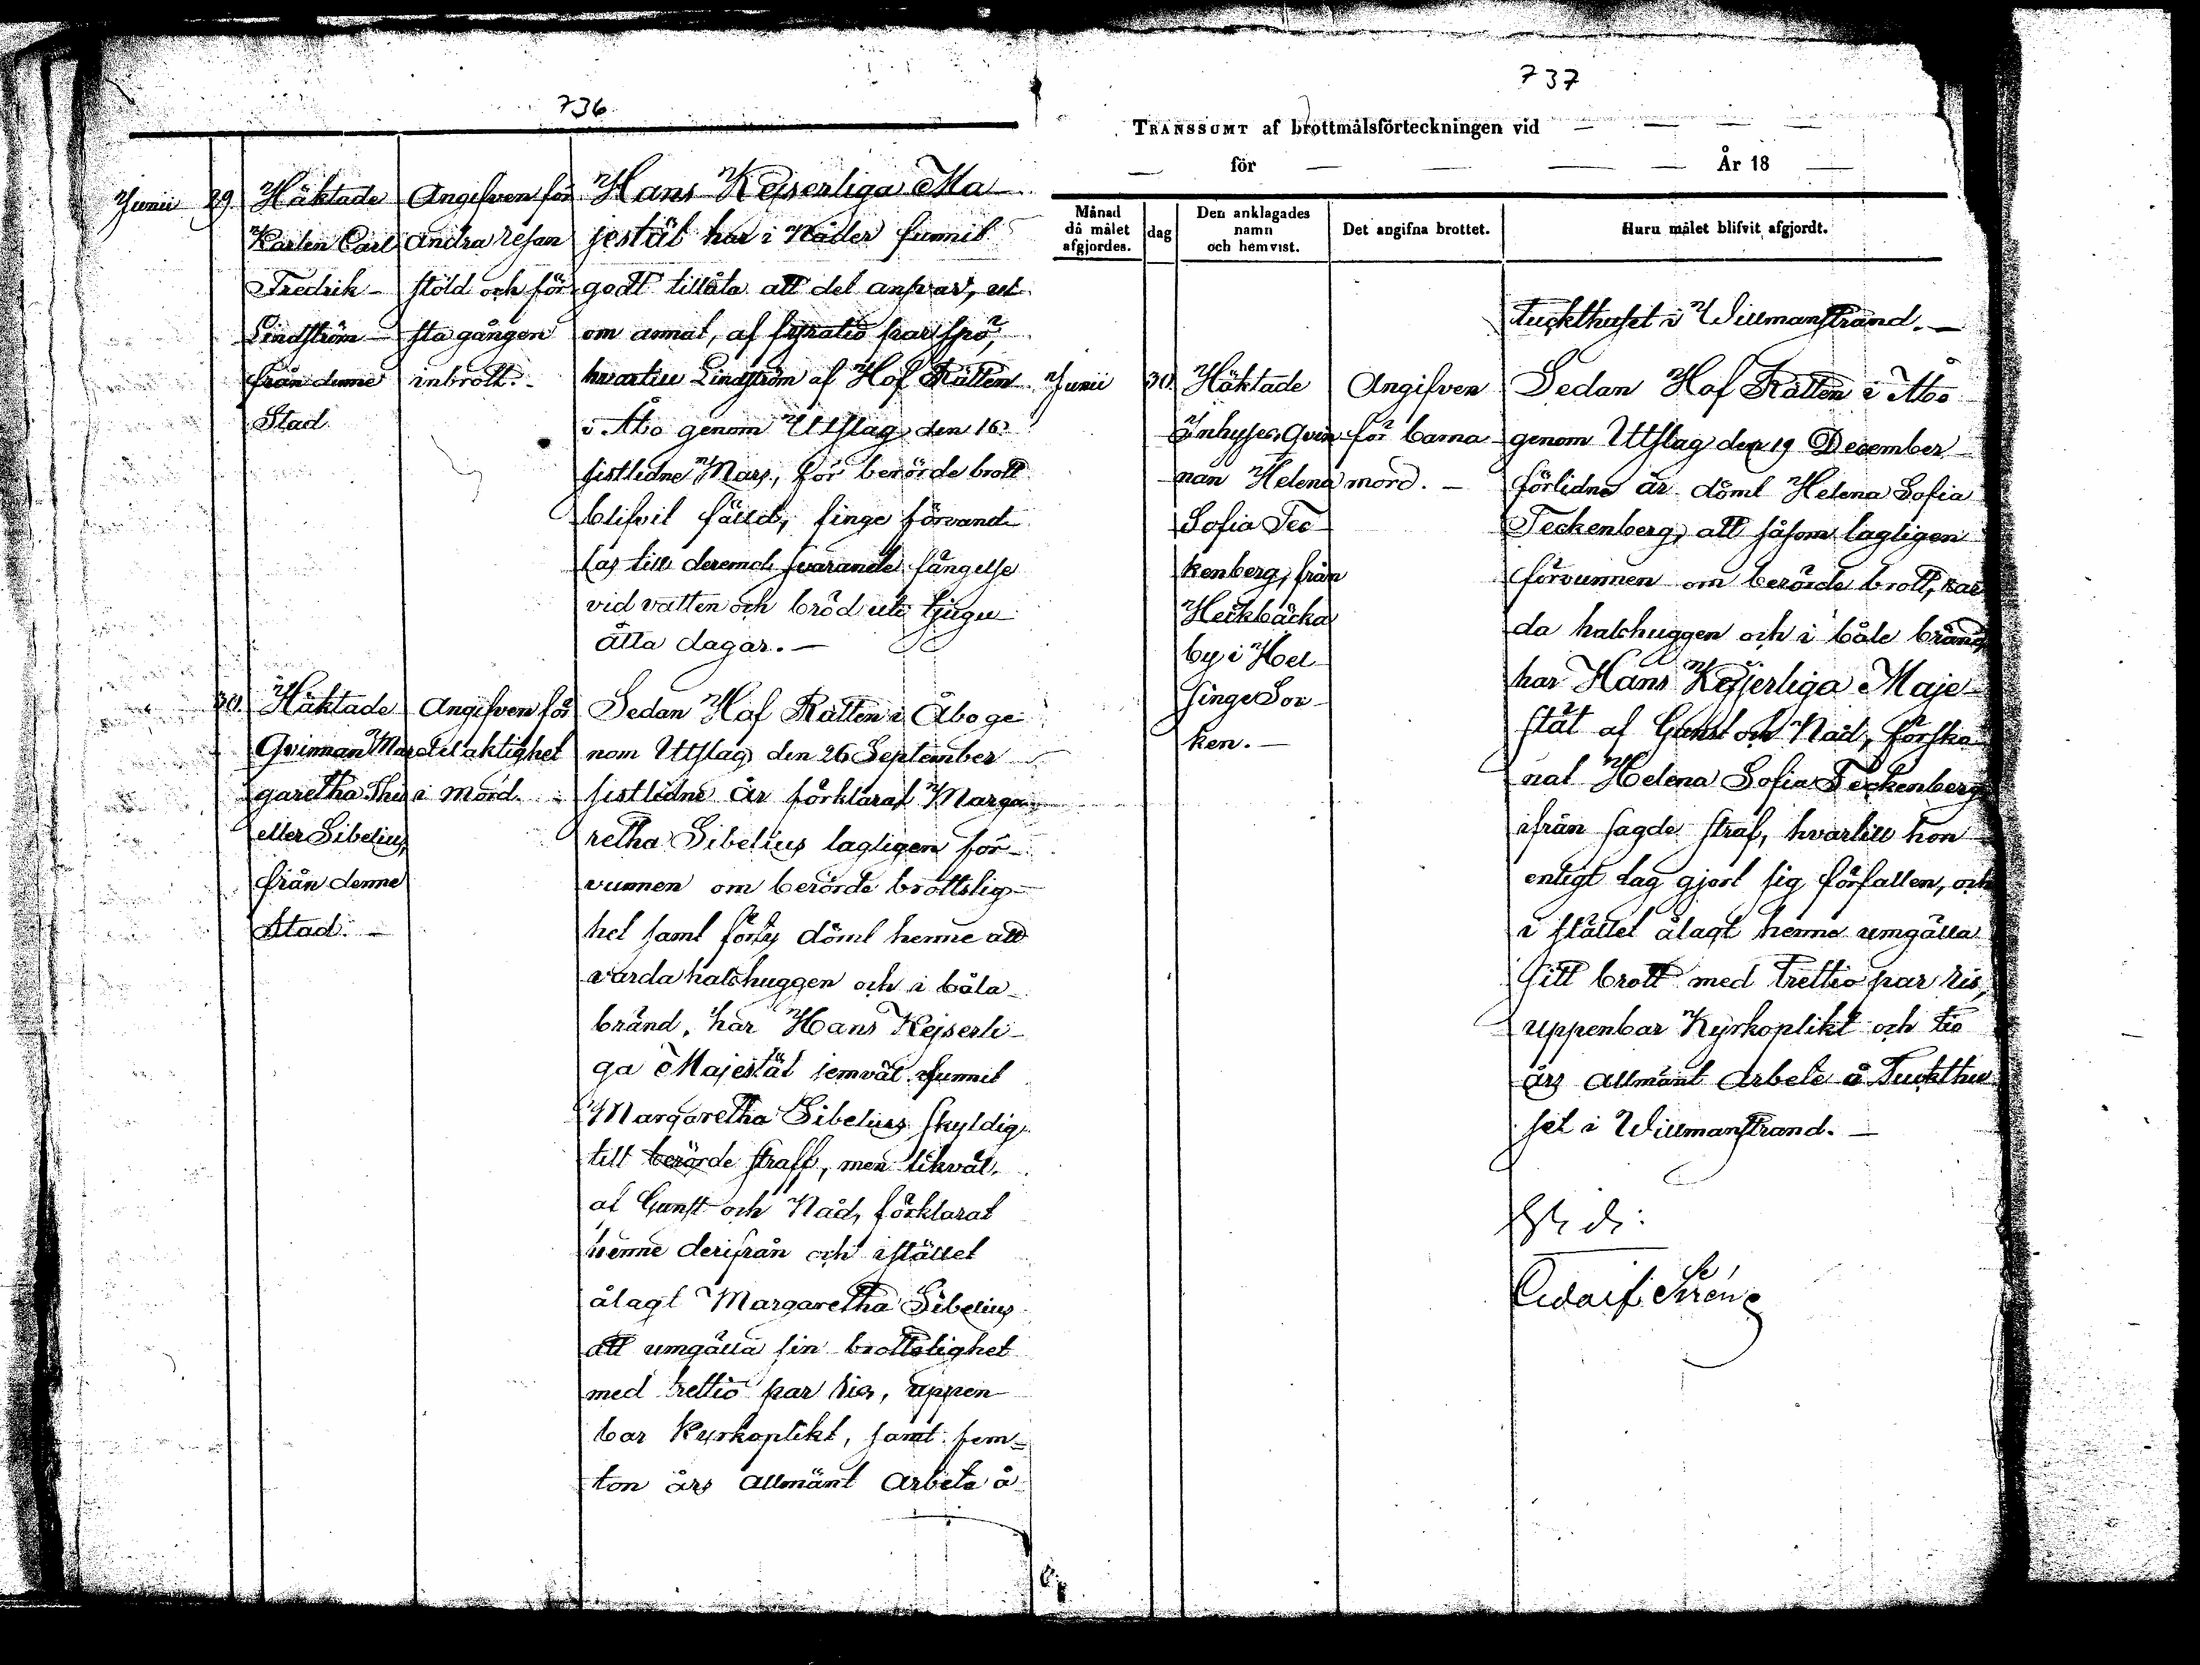 736
Junii
29
Häktade
Karlen Carl
Fredrik
Lindström
från denne
Stad
Angifven för
andra resan
stöld och för
sta gången
inbrott.
Hans Kejserliga Ma
jestät har i Nåder funnit
godt tillåta att det ansvar, ut
om annat, af fyratio par spö,
hvartill Lindström af Hof Rätten
i Åbo genom Utslag den 16
sistlidne Mars, för berörde brott
blifvit fälld, finge förvand
las till deremot svarande fängelse
vid vatten och bröd uti tjugu
åtta dagar. —
30.
Häktade
Qvinnan Mar
garetha Thu
eller Sibelius,
från denne
Stad. —
Angifven för
delaktighet
i mord.
Sedan Hof Rätten i Åbo ge
nom Utslag den 26 September
sistlidne år förklarat Marga
retha Sibelius lagligen för-
vunnen om berörde brottslig-
het samt förty dömt henne att
varda halshuggen och i båla
bränd, har Hans Kejserli-
ga Majestät jemväl funnit
Margaretha Sibelius skyldig
till berörde straff, men likväl,
af Gunst och Nåd, förklarat
henne derifrån och istället
ålagt Margaretha Sibelius
att umgälla sin brottslighet
med trettio par ris, uppen
bar Kyrkoplikt, samt fem=
ton års allmänt arbete å
737
TRANSSUMT af brottmålsförteckningen vid
för
År 18
Månad
då målet
afgjordes.
dag
Den anklagades
namn
och hemvist.
Det angifna brottet.
Huru målet blifvit afgjordt.
Tuckthuset i Willmanstrand. —
Junii
30.
Häktade
Inhyses Qvin
nan Helena
Sofia Tec
kenberg, från
Heikbäcka
by i Hol
singe Soc
ken. —
Angifven
för barna
mord. —
Sedan Hof Rätten i Åbo
genom Utslag den 19 December
förlidne år dömt Helena Sofia
Teckenberg, att såsom lagligen
förvunnen om berörde brott, var
da halshuggen och i båle bränd,
har Hans Kejserliga Maje
stät af Gunst och Nåd, förska
nat Helena Sofia Teckenberg
ifrån sagde straf, hvartill hon
enligt lag gjort sig förfallen, och
i stället ålagt henne umgälla
sitt brott med trettio par ris,
uppenbar Kyrkoplikt och tio
års allmänt arbete å Tuckthu
set i Willmanstrand. —